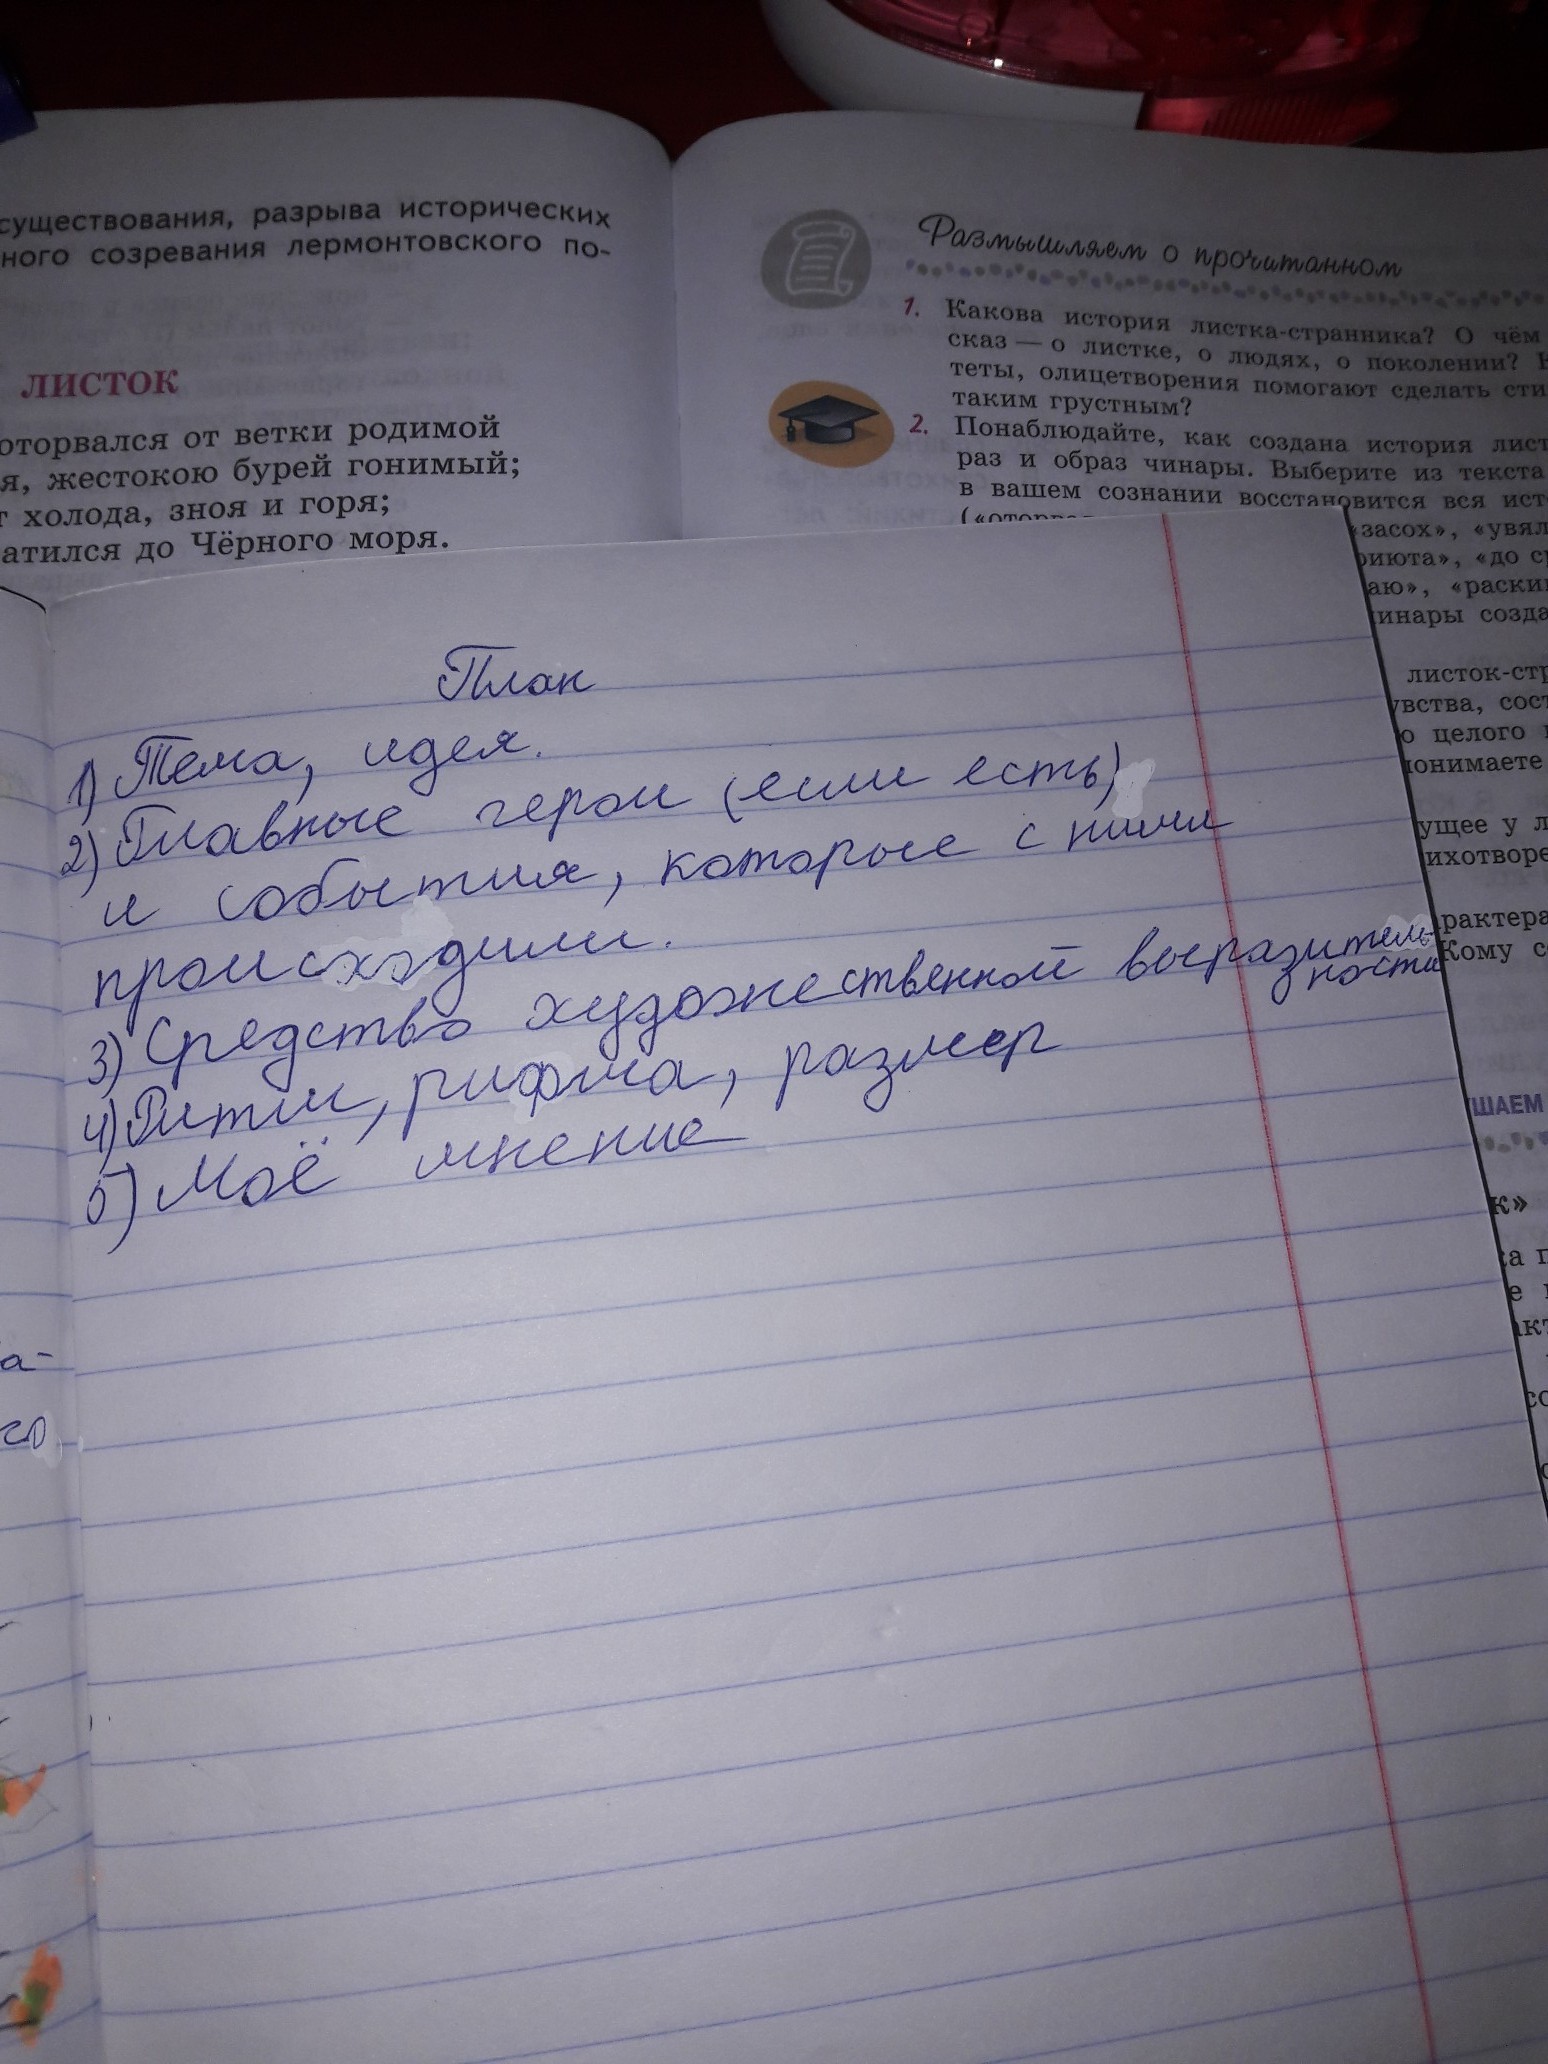 существования, разрыва исторических
ного созревания лермонтовского по-
ЛИСТОК
оторвался от ветки родимой
я, жестокою бурей гонимый;
т холода, зноя и горя;
атился до Чёрного моря.
Размышляем о прочитанном
1. Какова история листка-странника? О чём
сказ — о листке, о людях, о поколении?
теты, олицетворения помогают сделать сти
таким грустным?
2. Понаблюдайте, как создана история лист
раз и образ чинары. Выберите из текста
в вашем сознании восстановится вся ист
«засох», «увял
риюта», «до ср
аю», «раски
инары созда
листок-стр
увства, сост
о целого
понимаете
ущее у л
ихотворе
арактера
Кому с
ШАЕМ
к»
План
1) Тема, идея.
2) Главные герои (если есть)
и события, которые с ними
происходили.
3) Средство художественной выразитель-
ности
4) Ритм, рифма, размер
5) Моё мнение